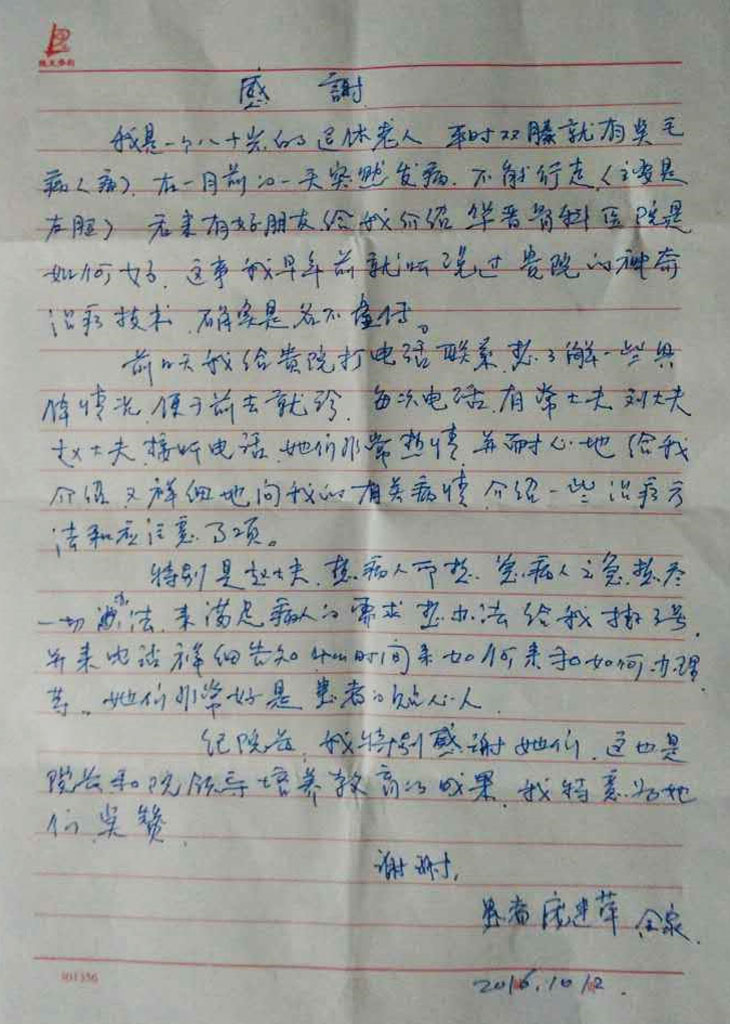 感謝
我是一个八十岁的退休老人 平时双膝就有点毛
病(痛),在一月前的一天突然发病.不能行走(主要是
左腿) 后来有好朋友给我介绍华晋骨科医院是
如何好,这事我早年前就听说过贵院的神奇
治疗技术,确实是名不虚传。
前日天我给贵院打电话联系想了解一些具
体情况,便于前去就诊,每次电话,有常大夫刘大夫
赵大夫,接听电话,她们非常热情,并耐心地给我
介绍又祥细地问我的有关病情,介绍一些治疗方
法和应注意事项。
特别是赵大夫,想病人所想,急病人之急,想尽
一切办法,来满足病人的要求想办法给我挂了号,
并来电话祥细告知什么时间来如何来和如何办理
等。她们非常好是患者的贴心人
纪院长,我特别感谢她们,这也是
院长和院领导培养教育的成果,我特意为她
们点赞,
谢谢,
患者 庞建萍 全家.
2016.10.2.
301356